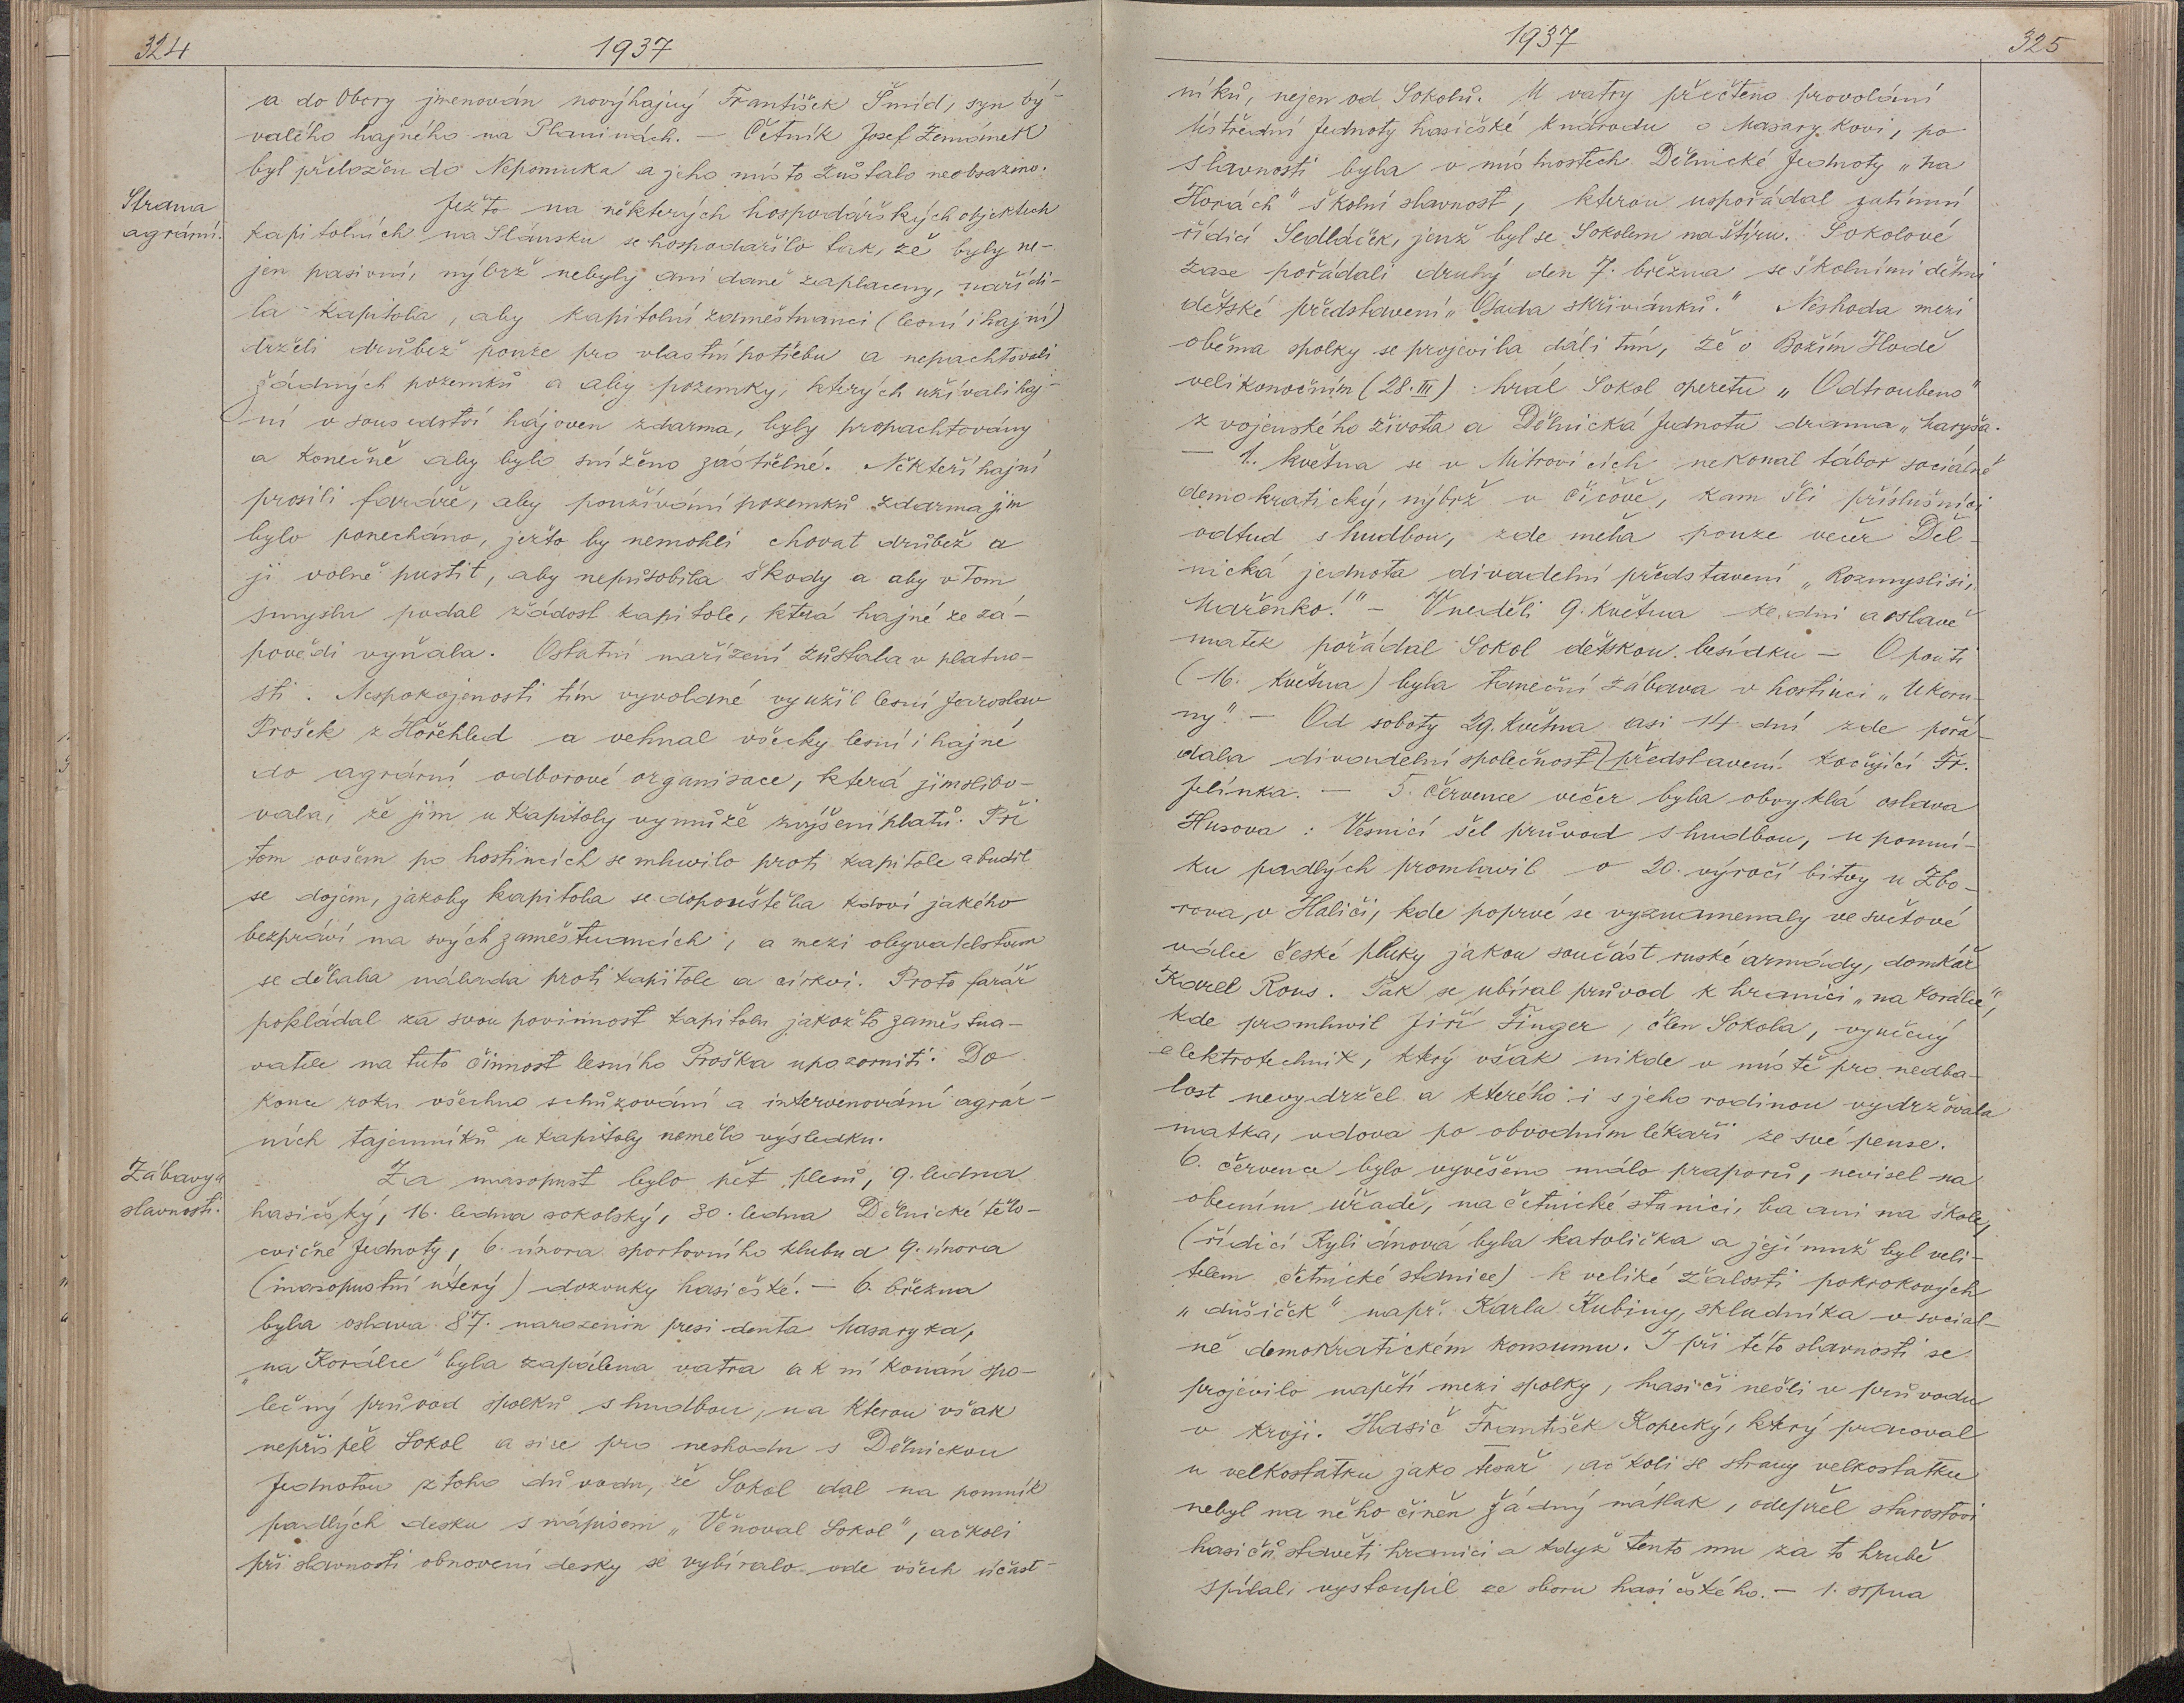 324
1937
a do Obory jmenován nový hajný František Šmíd, syn bý-
valého hajného na Planinách. — Četník Josef Zemánek
byl přeložen do Nepomuka a jeho místo zůstalo neobsazeno.
Strana
agrární.
Ježto na některých hospodářských objektech
kapitolních na Slánsku se hospodařilo tak, že byly ne-
jen pasivní, nýbrž nebyly ani daně zaplaceny, nařídi-
la kapitola, aby kapitolní zaměstnanci (lesní i hajní)
drželi drůbež pouze pro vlastní potřebu a nepachtovali
žádných pozemků a aby pozemky, kterých užívali haj-
ní v sousedství hájoven zdarma, byly propachtovány
a konečně aby bylo sníženo zástřelné. Někteří hajní
prosili faráře, aby používání pozemků zdarma jim
bylo ponecháno, ježto by nemohli chovat drůbež a
ji volně pustit, aby nepůsobila škody a aby v tom
smyslu podal žádost kapitole, která hajné ze zá-
povědi vyňala. Ostatní nařízení zůstala v platno-
sti. Nespokojenosti tím vyvolané využil lesní Jaroslav
Prošek z Hořehled a vehnal všecky lesní i hajné
do agrární odborové organisace, která jim slibo-
vala, že jim u kapitoly vymůže zvýšení platů. Při
tom ovšem po hostincích se mluvilo proti kapitole a budil
se dojem, jakoby kapitola se dopouštěla kdoví jakého
bezpráví na svých zaměstnancích, a mezi obyvatelstvem
se dělala nálada proti kapitole a církvi. Proto farář
pokládal za svou povinnost kapitolu jakožto zaměstna-
vatele na tuto činnost lesního Proška upozorniti. Do
konce roku všechno schůzování a intervenování agrár-
ních tajemníků u kapitoly nemělo výsledku.
Zábavy a
slavnosti.
Za masopust bylo pět plesů, 9. ledna
hasičský, 16. ledna sokolský, 30. ledna Dělnické tělo-
cvičné Jednoty, 6. února sportovního klubu a 9. února
(masopustní úterý) dozvuky hasičské. — 6. března
byla oslava 87. narozenin presidenta Masaryka,
"na Korálce" byla zapálena vatra a k ní konán spo-
lečný průvod spolků s hudbou, na kterou však
nepřispěl Sokol a sice pro neshodu s Dělnickou
Jednotou z toho důvodu, že Sokol dal na pomník
padlých desku s nápisem „Věnoval Sokol", ačkoli
při slavnosti obnovení desky se vybíralo ode všech účast-
1937
325
níků, nejen od Sokolů. U vatry přečteno provolání
Ústřední Jednoty hasičské k národu o Masarykovi, po
slavnosti byla v místnostech Dělnické Jednoty „na
Horách" školní slavnost, kterou uspořádal zatímní
řídicí Sedláček, jenž byl se Sokolem na štíru. Sokolové
zase pořádali druhý den 7. března se školními dětmi
dětské představení „Osada skřivánků." Neshoda mezi
oběma spolky se projevila dáli tím, že o Božím Hodě
velikonočním (28. III) hrál Sokol operetu „Odtroubeno"
z vojenského života a Dělnická Jednota drama „Maryša.
— 1. května se v Mitrovicích nekonal tábor sociálně
demokratický, nýbrž v Čičově, kam šli příslušníci
odtud s hudbou, zde měla pouze večer Děl-
nická jednota divadelní představení „Rozmysli si,
Mařenko!" — V neděli 9. května ke dni a oslavě
matek pořádal Sokol dětskou besídku — O pouti
(16. května) byla taneční zábava v hostinci „U koru-
ny." — Od soboty 29. května asi 14 dní zde pořá-
dala divadelní společnost představení kočující Fr.
Jelínka. — 5. července večer byla obvyklá oslava
Husova: Vesnicí šel průvod s hudbou, u pomní-
ku padlých promluvil o 20. výročí bitvy u Zbo-
rova, v Haliči, kde poprvé se vyznamenaly ve světové
válce české pluky jakou součást ruské armády, domkář
Karel Rous. Pak se ubíral průvod k hranici „na Korálce",
kde promluvil Jiří Finger, člen Sokola, vyučený
elektrotechnik, který však nikde v místě pro nedba-
lost nevydržel a kterého i s jeho rodinou vydržovala
matka, vdova po obvodním lékaři ze své pense.
6. července bylo vyvěšeno málo praporů, nevisel na
obecním úřadě, na četnické stanici, ba ani na škole,
(řídicí Kyliánová byla katolička a její muž byl veli-
telem četnické stanice) k veliké žalosti pokrokových
„dušiček" např. Karla Kubiny, skladníka v sociál-
ně demokratickém konsumu. I při této slavnosti se
projevilo napětí mezi spolky, hasiči nešli v průvodu
v kroji. Hasič František Kopecký, který pracoval
u velkostatku jako tesař, ačkoli se strany velkostatku
nebyl na něho činěn žádný nátlak, odepřel starostovi
hasičů stavěti hranici a když tento mu za to hrubě
spílal, vystoupil ze sboru hasičského. — 1. srpna